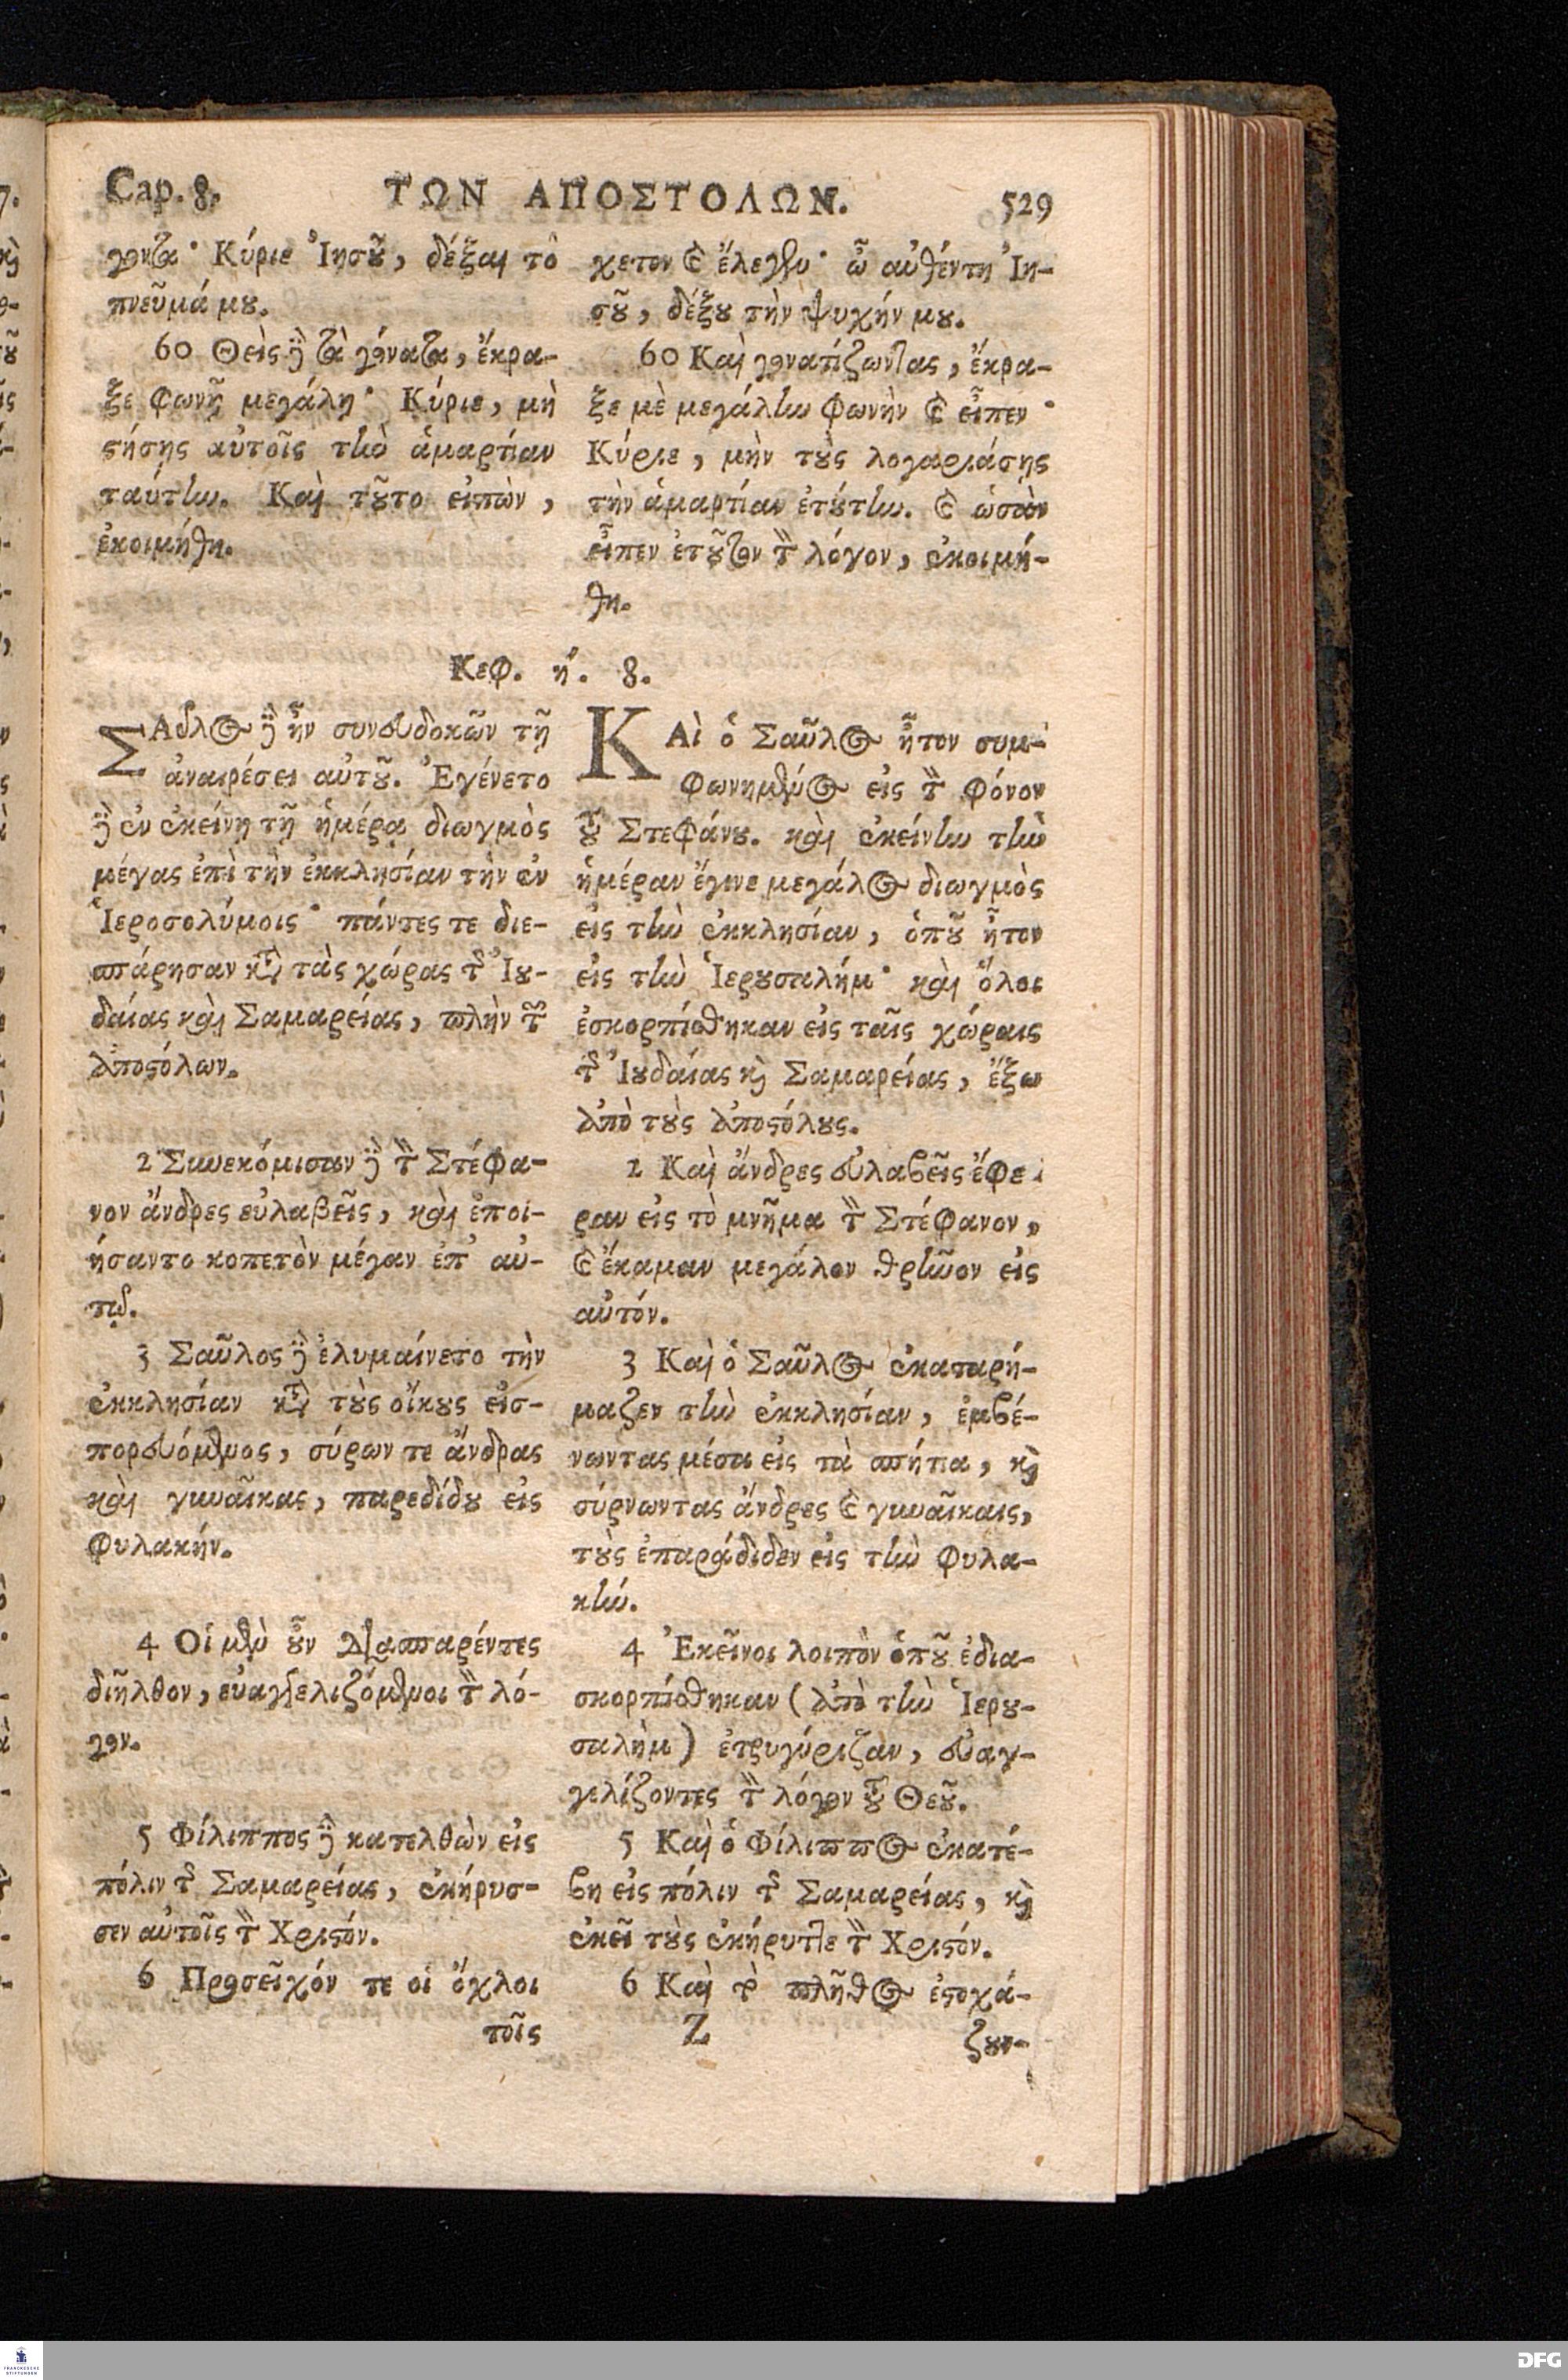 Cap. 8. ΤΩΝ ΑΠΟΣΤΟΛΩΝ. 529
γοντα· Κύριε Ἰησοῦ, δέξαι τὸ
πνεῦμά μου.
60 Θεὶς δὲ τὰ γόνατα, ἔκρα-
ξε φωνῇ μεγάλῃ· Κύριε, μὴ
στήσῃς αὐτοῖς τὴν ἁμαρτίαν
ταύτην. Καὶ τοῦτο εἰπὼν,
ἐκοιμήθη.
χετον καὶ ἔλεγεν· ὦ αὐθέντη Ἰη-
σοῦ, δέξου τὴν ψυχήν μου.
60 Καὶ γονατίζωντας, ἔκρα-
ξε μὲ μεγάλην φωνὴν καὶ εἶπεν·
Κύριε, μὴν τοὺς λογαριάσῃς
τὴν ἁμαρτίαν ἐτούτην. καὶ ὡσὰν
εἶπεν ἐτοῦτον τὸν λόγον, ἐκοιμή-
θη.
Κεφ. ή. 8.
ΣΑῦλος δὲ ἦν συνευδοκῶν τῇ
ἀναιρέσει αὐτοῦ. Ἐγένετο
δὲ ἐν ἐκείνῃ τῇ ἡμέρᾳ διωγμὸς
μέγας ἐπὶ τὴν ἐκκλησίαν τὴν ἐν
Ἱεροσολύμοις· πάντες τε διε-
σπάρησαν κατὰ τὰς χώρας τῆς Ἰου-
δαίας καὶ Σαμαρείας, πλὴν τῶν
ἀποστόλων.
2 Συνεκόμισαν δὲ τὸν Στέφα-
νον ἄνδρες εὐλαβεῖς, καὶ ἐποι-
ήσαντο κοπετὸν μέγαν ἐπ' αὐ-
τῷ.
3 Σαῦλος δὲ ἐλυμαίνετο τὴν
ἐκκλησίαν κατὰ τοὺς οἴκους εἰσ-
πορευόμενος, σύρων τε ἄνδρας
καὶ γυναῖκας, παρεδίδου εἰς
φυλακήν.
4 Οἱ μὲν οὖν διασπαρέντες
διῆλθον, εὐαγγελιζόμενοι τὸν λό-
γον.
5 Φίλιππος δὲ κατελθὼν εἰς
πόλιν τῆς Σαμαρείας, ἐκήρυσ-
σεν αὐτοῖς τὸν Χριστόν.
6 Προσεῖχόν τε οἱ ὄχλοι
τοῖς
ΚΑὶ ὁ Σαῦλος ἦτον συμ-
φωνημένος εἰς τὸν φόνον
τοῦ Στεφάνου. καὶ ἐκείνην τὴν
ἡμέραν ἔγινε μεγάλος διωγμὸς
εἰς τὴν ἐκκλησίαν, ὁποῦ ἦτον
εἰς τὴν Ἱερουσαλήμ· καὶ ὅλοι
ἐσκορπίσθηκαν εἰς ταῖς χώραις
τῆς Ἰουδαίας καὶ Σαμαρείας, ἔξω
ἀπὸ τοὺς ἀποστόλους.
2 Καὶ ἄνδρες εὐλαβεῖς ἔφε-
ραν εἰς τὸ μνῆμα τὸν Στέφανον,
καὶ ἔκαμαν μεγάλον θρῆνον εἰς
αὐτόν.
3 Καὶ ὁ Σαῦλος ἐκαταρή-
μαζεν τὴν ἐκκλησίαν, ἐμβέ-
νωντας μέσα εἰς τὰ σπήτια, καὶ
σύρνωντας ἄνδρες καὶ γυναῖκαις,
τοὺς ἐπαράδιδεν εἰς τὴν φυλα-
κήν.
4 Ἐκεῖνοι λοιπὸν ὁποῦ ἐδια-
σκορπίσθηκαν (ἀπὸ τὴν Ἱερου-
σαλὴμ) ἐτριγύριζαν, εὐαγ-
γελίζοντες τὸν λόγον τοῦ Θεοῦ.
5 Καὶ ὁ Φίλιππος ἐκατέ-
βη εἰς πόλιν τῆς Σαμαρείας, καὶ
ἐκεῖ τοὺς ἐκήρυττε τὸν Χριστόν.
6 Καὶ τὸ πλῆθος ἐστοχά-
Z ζουν-
FRANCKESCHE STIFTUNGEN
DFG